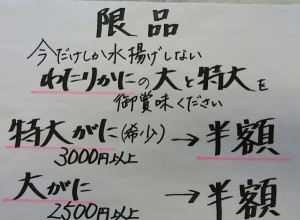 限品
今だけしか水揚げしない
わたりがにの大と特大を
御賞味ください
特大がに(希少)→半額
3000円以上
大がに→半額
2500円以上